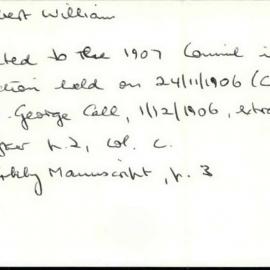 bert William
ted to the 1907 Council i
ction held on 24/11/1906 (C
. George Call, 1/12/1906,
p.2, col. c.
Manuscript, p. 3